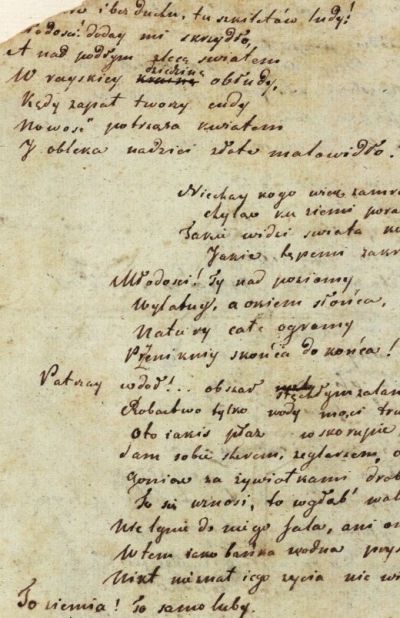 i bez ducha, tu szkieletów ludy!
łodości doday mi skrzydło,
A nad podłym zlecę światem
W rayskiey dziedzinę obłudy,
Kędy zapał tworzy cudy
Nowość potrząsa kwiatem
I obleka nadziei złote malowidło.
Niechay kogo wiek zamro
Chyląc ku ziemi pora
Takie widzi świata ko
Jakie tępemi zakr
Młodości! Ty nad poziomy
Wylatuy, a okiem słońca,
Natury całe ogromy
Przenikniy z końca do końca!
Patrzay w doł!.. obszar stęchłym zalan
Robactwo tylko wody męci tru
Oto iakiś płaz w skorupie
Sam sobie sterem, żeglarzem, o
Goniąc za żywiołkami drob
To się wznosi, to w głąb wal
Nie lgnie do niego fala, ani on
Wtem iako bańka wodna prys
Nikt nieznał iego życia nie wi
To ziemia! To samoluby.